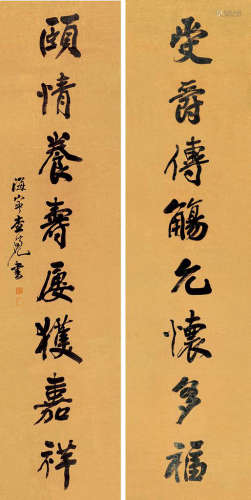 受爵傳觴允懷多福
頤情養壽屢獲嘉祥
海寧查冕書